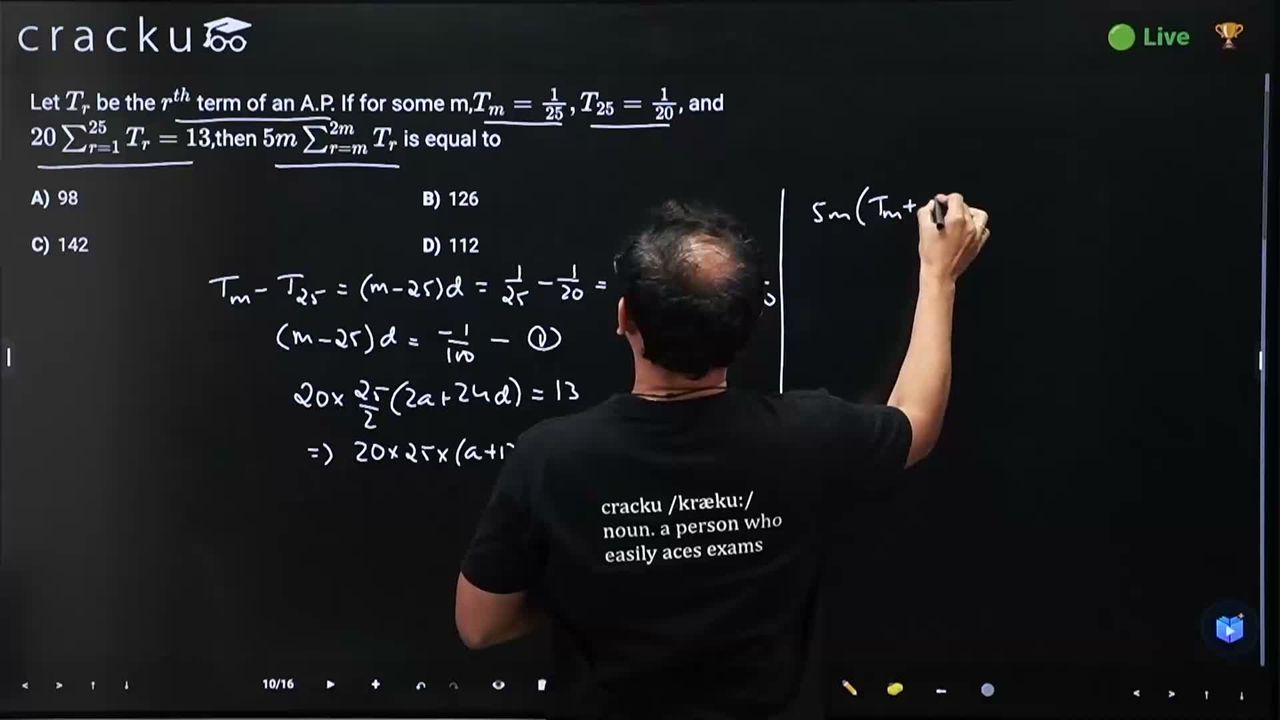 cracku
Live
Let T_r be the r^th term of an A.P. If for some m, T_m = 1/25, T_25 = 1/20, and
20 ∑_{r=1}^{25} T_r = 13, then 5m ∑_{r=m}^{2m} T_r is equal to
A) 98
B) 126
C) 142
D) 112
5m(T_m+
T_m - T_25 = (m-25)d = 1/25 - 1/20 =
(m-25)d = -1/100 - ①
20 x 25/2 (2a+24d) = 13
=> 20x25x(a+1
cracku /kræku:/
noun. a person who
easily aces exams
10/16